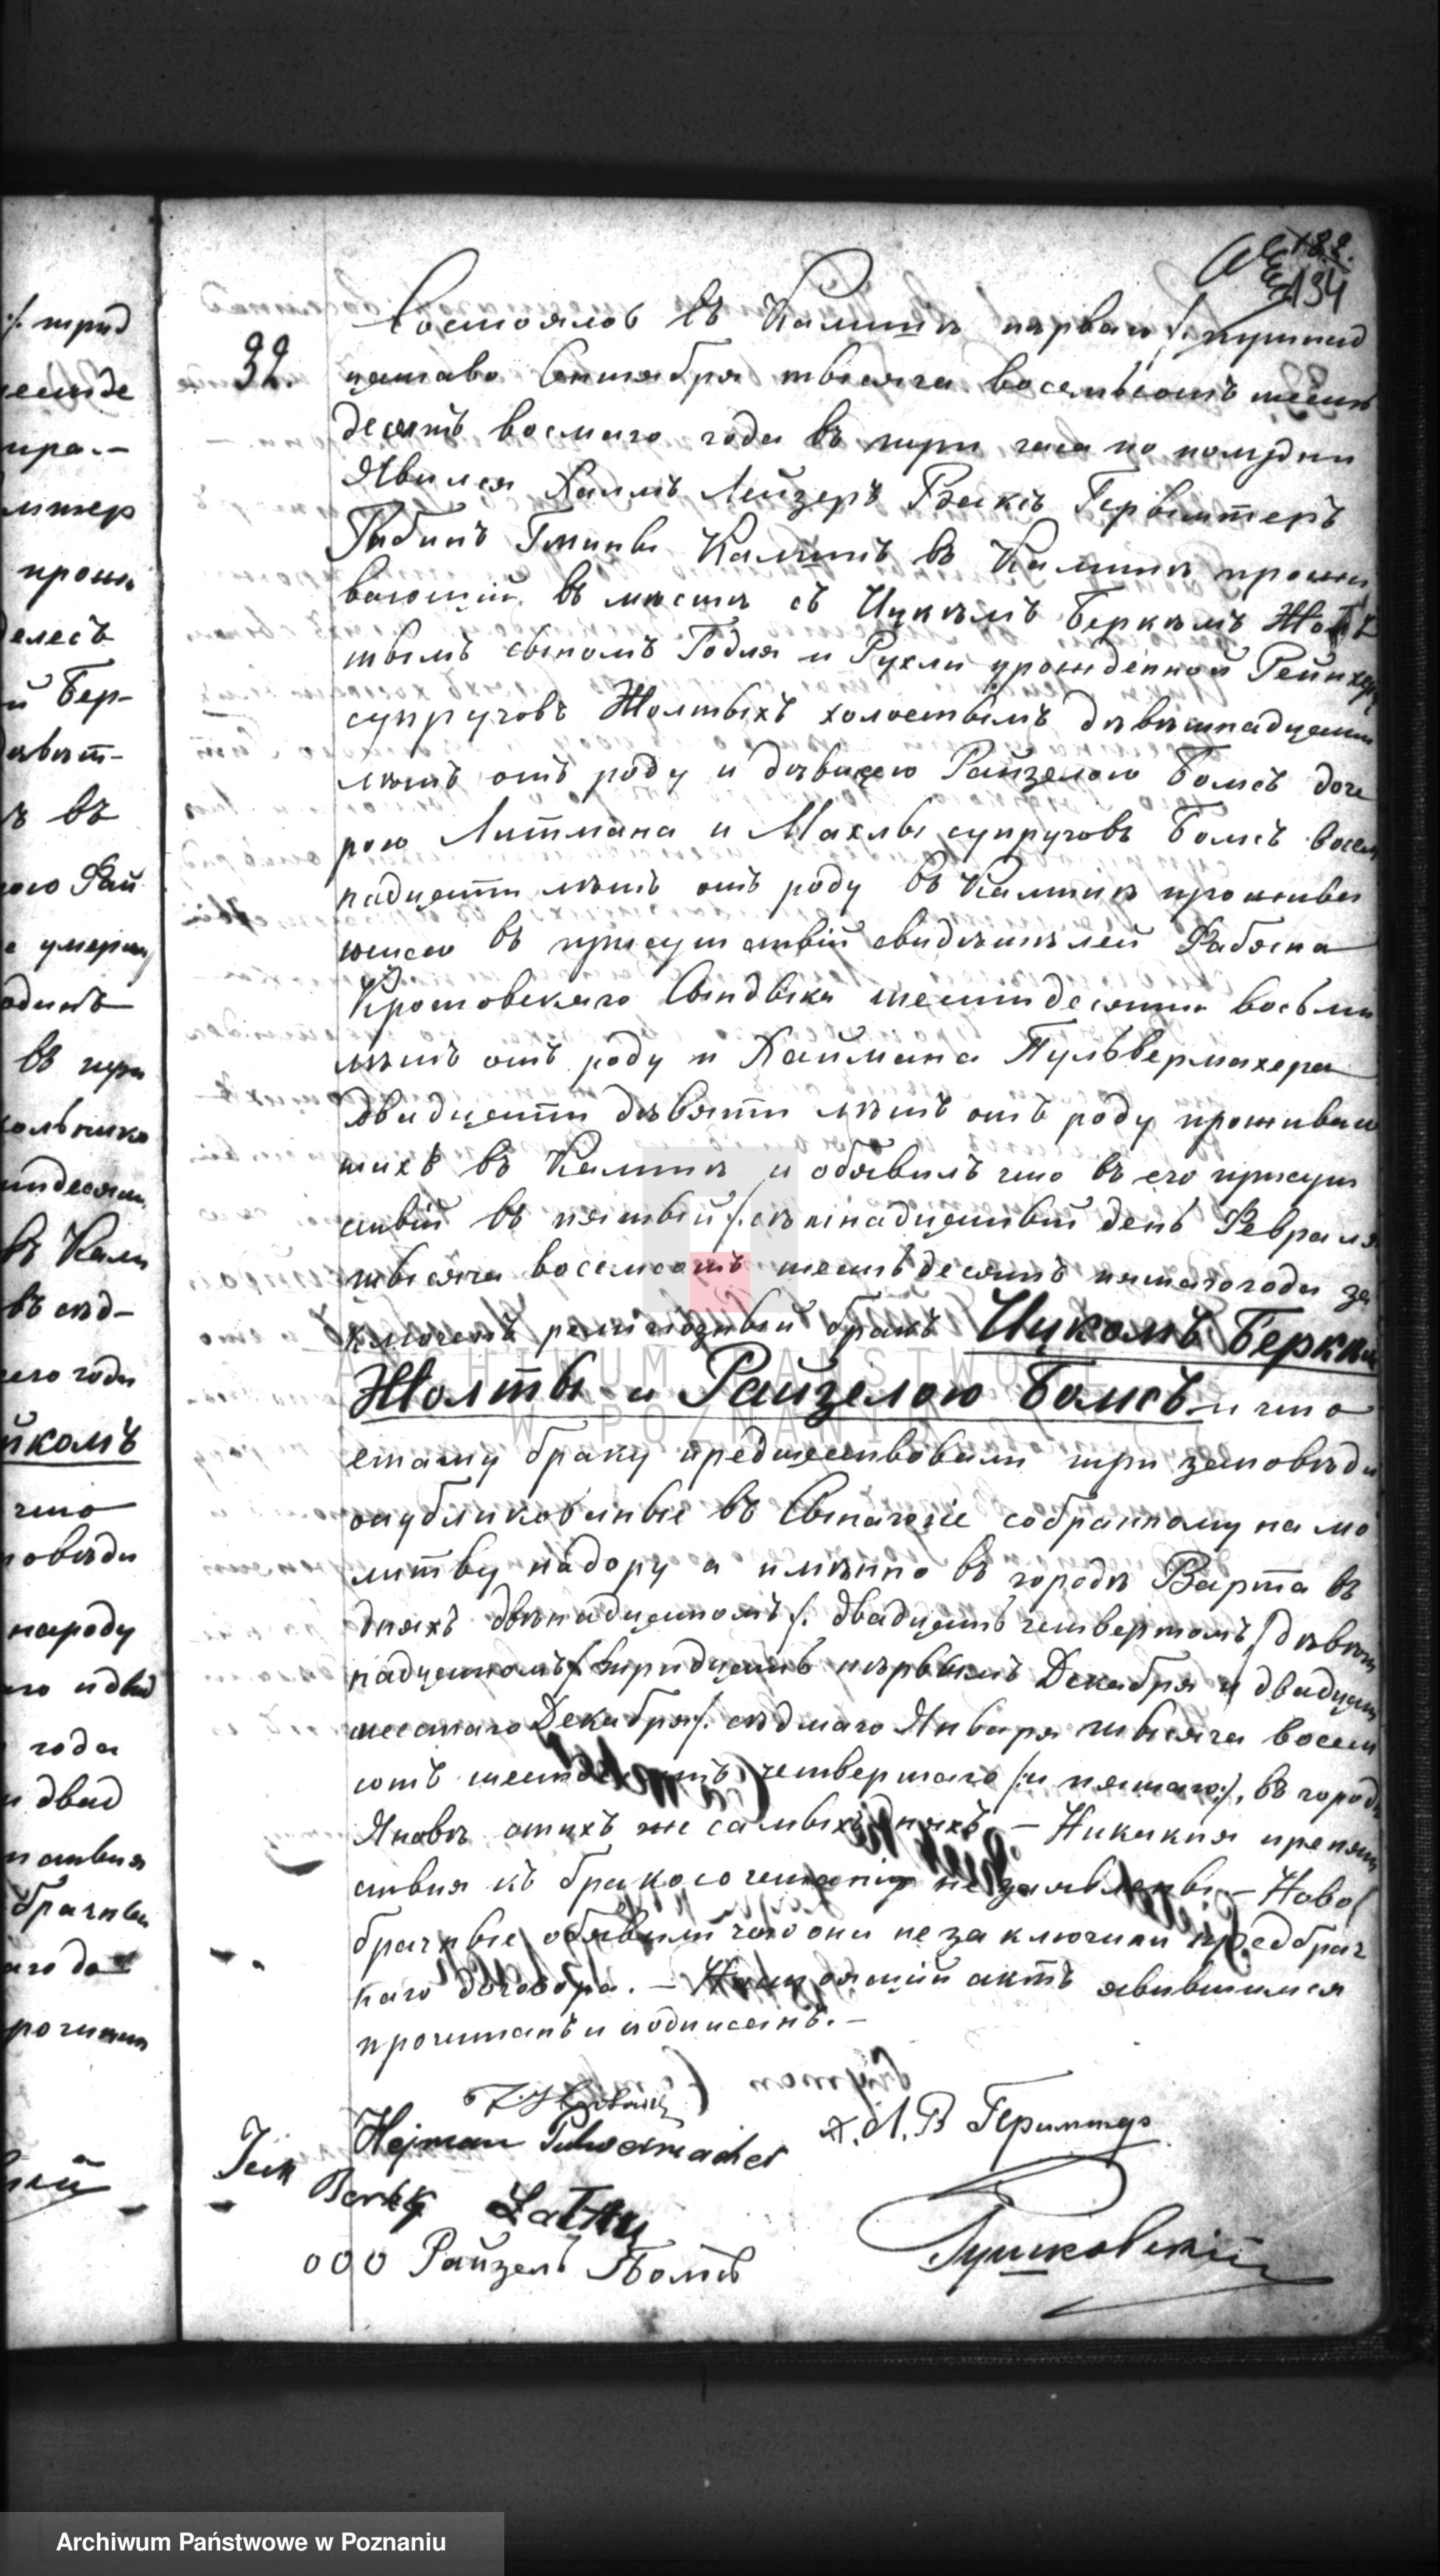 182.
134
32.
Состоялось въ Калишѣ перваго /: тринад
цатаго Сентября тысяча восемьсотъ шесть
десятъ восмаго года въ три часа по полудни
Явился Хаимъ Лейзеръ Ваксъ
Рабинъ Гмины Калишъ в Калишѣ прожи
вающій въ мѣстѣ съ Ицкѣмъ Беркѣмъ Жол
тымъ сыномъ Годля и Рухли урожденной
супруговъ Жолтыхъ холостымъ девѣтнадцати
лѣтъ отъ роду и дѣвицею Райзелою Бомсъ доче
рою Литмана и Махлы супруговъ Бомсъ восем
надцати лѣтъ отъ роду въ Калишѣ прожива
ющею въ присутствій свидѣтѣлей Фабяна
Кротовскаго Сындыка шестидесяти восьми
лѣтъ отъ роду и Хаймана Пульвермахера
двадцати дѣвяти лѣтъ отъ роду проживаю
щихъ въ Калишѣ и обявилъ что въ его присут
ствій въ пятый /: сѣмнадцатый день Февраля
тысяча восемсотъ шестьдесятъ пятаго года за
ключенъ религіозный бракъ Ицкомъ Беркѣмъ
Жолты и Райзелою Бомсъ и что
етому браку предшествовали три заповѣди
опубликованые въ Сынагогіе собранному на мо
литву народу а имѣнно въ городѣ Варта въ
дняхъ двѣнадцатомъ /: двадцать четвертомъ / дѣвѣт
надцатомъ /: тридцать первымъ Декабря и двадцать
шестаго Декабря /: сѣдмаго Января тысяча восем
сотъ шестьдесятъ четвертаго /: и пятаго :/, въ городѣ
Яновѣ отихъ же самыхъ дняхъ – Никакия препят
ствия къ бракосочетанію не заявлены – Ново
брачные обявили что они не заключили предбрач
наго договора. – Настоящій актъ явившимся
прочитанъ и подписанъ. –
Hejman Pulvermacher
Х. Л. В
Icik
Berek
Райзель Бомсъ